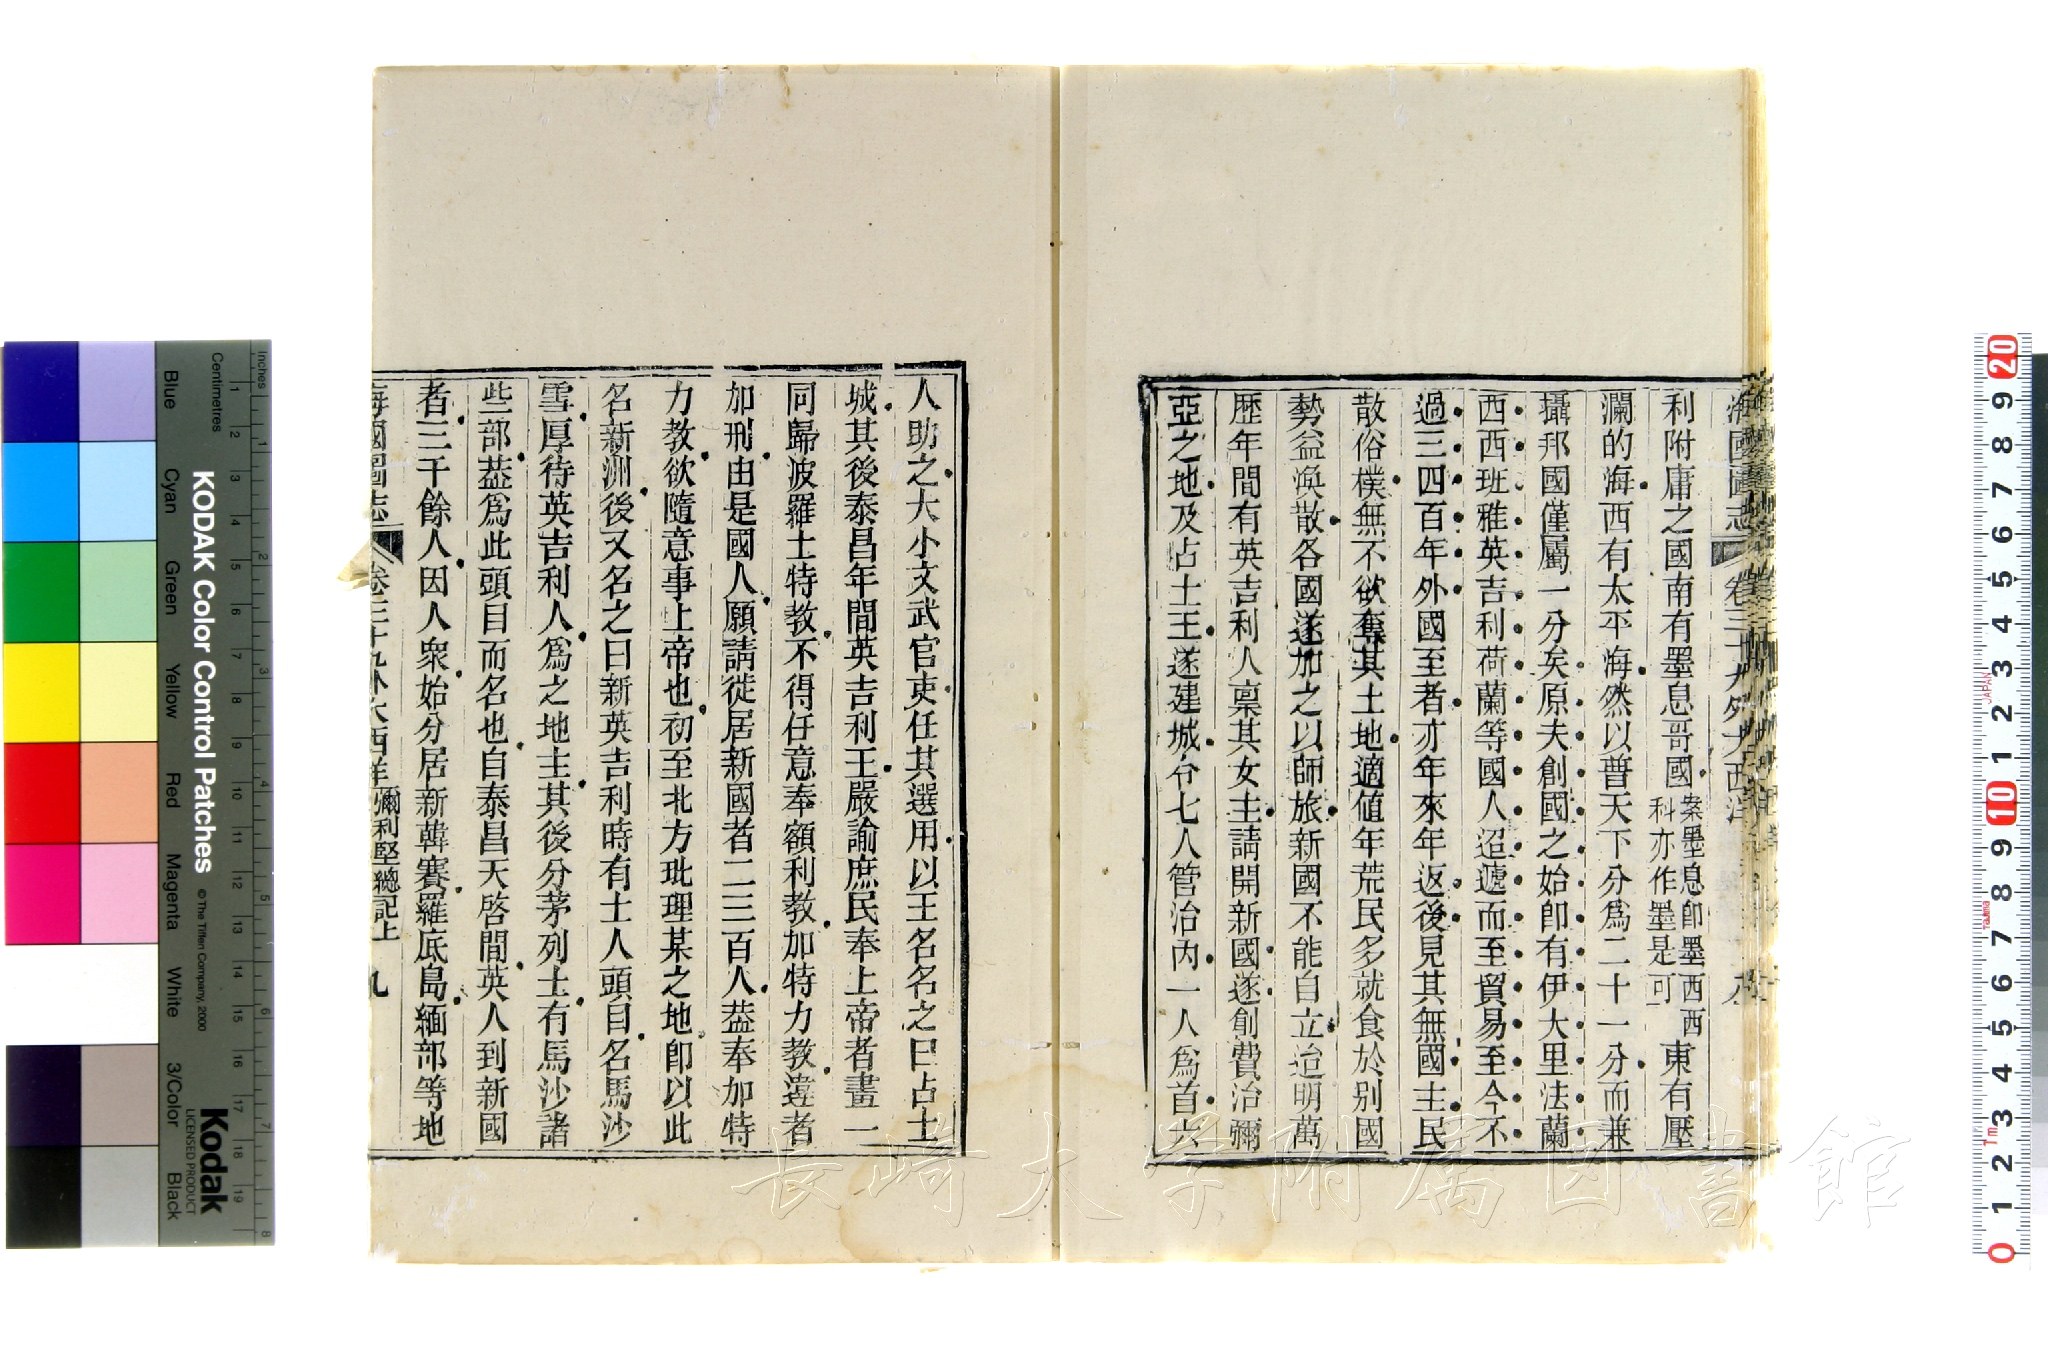 海國圖志 卷三十九外大西洋 八
利附庸之國南有墨息哥國案墨息卽墨西西科亦作墨是可東有壓
瀾的海西有太平海然以普天下分爲二十一分而兼
攝邦國僅屬一分矣原夫創國之始卽有伊大里法蘭
西西班雅英吉利荷蘭等國人迢遞而至貿易至今不
過三四百年外國至者亦年來年返後見其無國主民
散俗樸無不欲奪其土地適値年荒民多就食於別國
勢益渙散各國遂加之以師旅新國不能自立迨明萬
歷年間有英吉利人稟其女主請開新國遂創費治彌
亞之地及占士王遂建城令七人管治內一人爲首六
人助之大小文武官吏任其選用以王名名之曰占士
城其後泰昌年間英吉利王嚴諭庶民奉上帝者畫一
同歸波羅士特教不得任意奉額利教加特力教違者
加刑由是國人願請徙居新國者二三百人葢奉加特
力教欲隨意事上帝也初至北方玭理某之地卽以此
名新洲後又名之曰新英吉利時有土人頭目名馬沙
雪厚待英吉利人爲之地主其後分茅列土有馬沙諸
些部葢爲此頭目而名也自泰昌天啓間英人到新國
者三千餘人因人衆始分居新韓賽羅底島緬部等地
海國圖志 卷三十九外大西洋彌利堅總記上 九
長崎大学附属図書館
KODAK Color Control Patches
©The Tiffen Company, 2000
Kodak
LICENSED PRODUCT
Inches
Centimetres
1 2 3 4 5 6 7 8 9 10 11 12 13 14 15 16 17 18 19
1 2 3 4 5 6 7 8
Blue Cyan Green Yellow Red Magenta White 3/Color Black
20 9 8 7 6 5 4 3 2 1 10 9 8 7 6 5 4 3 2 1 0
JAPAN
Tajima
1m